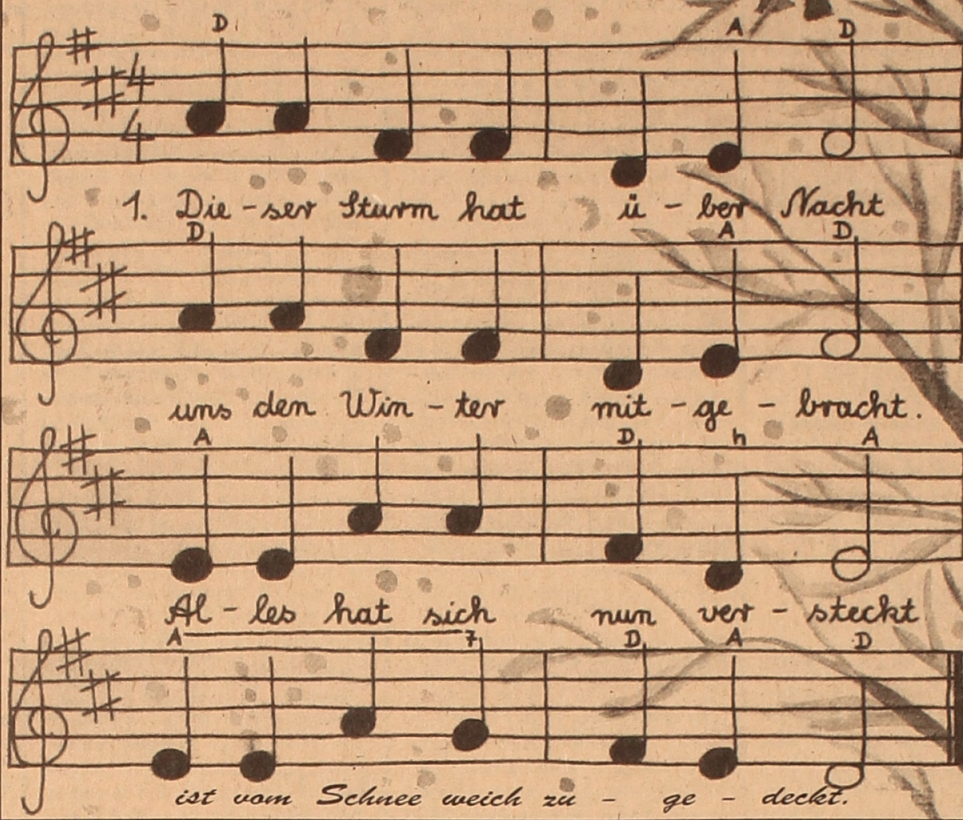 D A D
4
4
1. Die-ser Sturm hat ü-ber Nacht
D A D
uns den Win-ter mit-ge-bracht.
A D h A
Al-les hat sich nun ver-steckt
A 7 D A D
ist vom Schnee weich zu-ge-deckt.